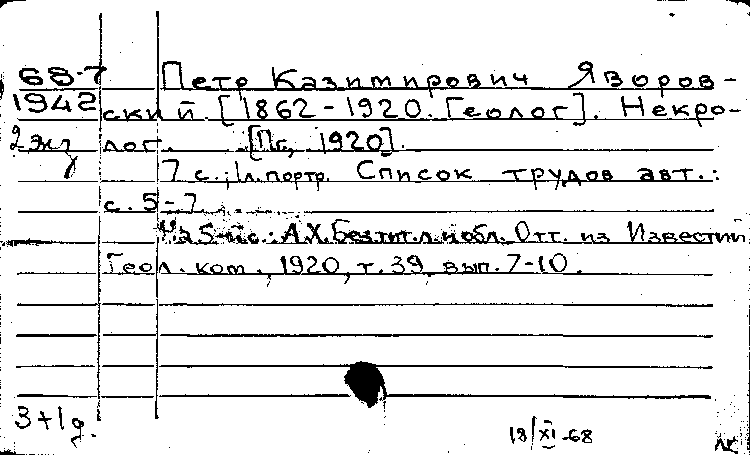 68-7 Петр Казимирович Яворов-
1942 ский [1862-1920. Геолог]. Некро-
2 экз лог. [Пг, 1920].
7 с.; 1 л. портр. Список трудов авт.:
с. 5-7.
На 5-й с.: А.Х. Без тит. л. и обл. Отт. из Известий
Геол. ком., 1920, т. 39, вып. 7-10.
3+1д.
18/XI-68